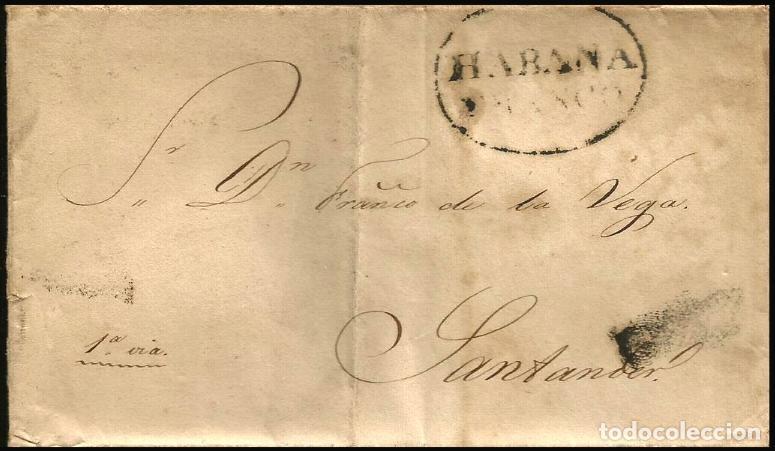 HABANA
FRANCO
Sr. Dn. Franco de la Vega.
1a via.
Santander.
todocoleccion